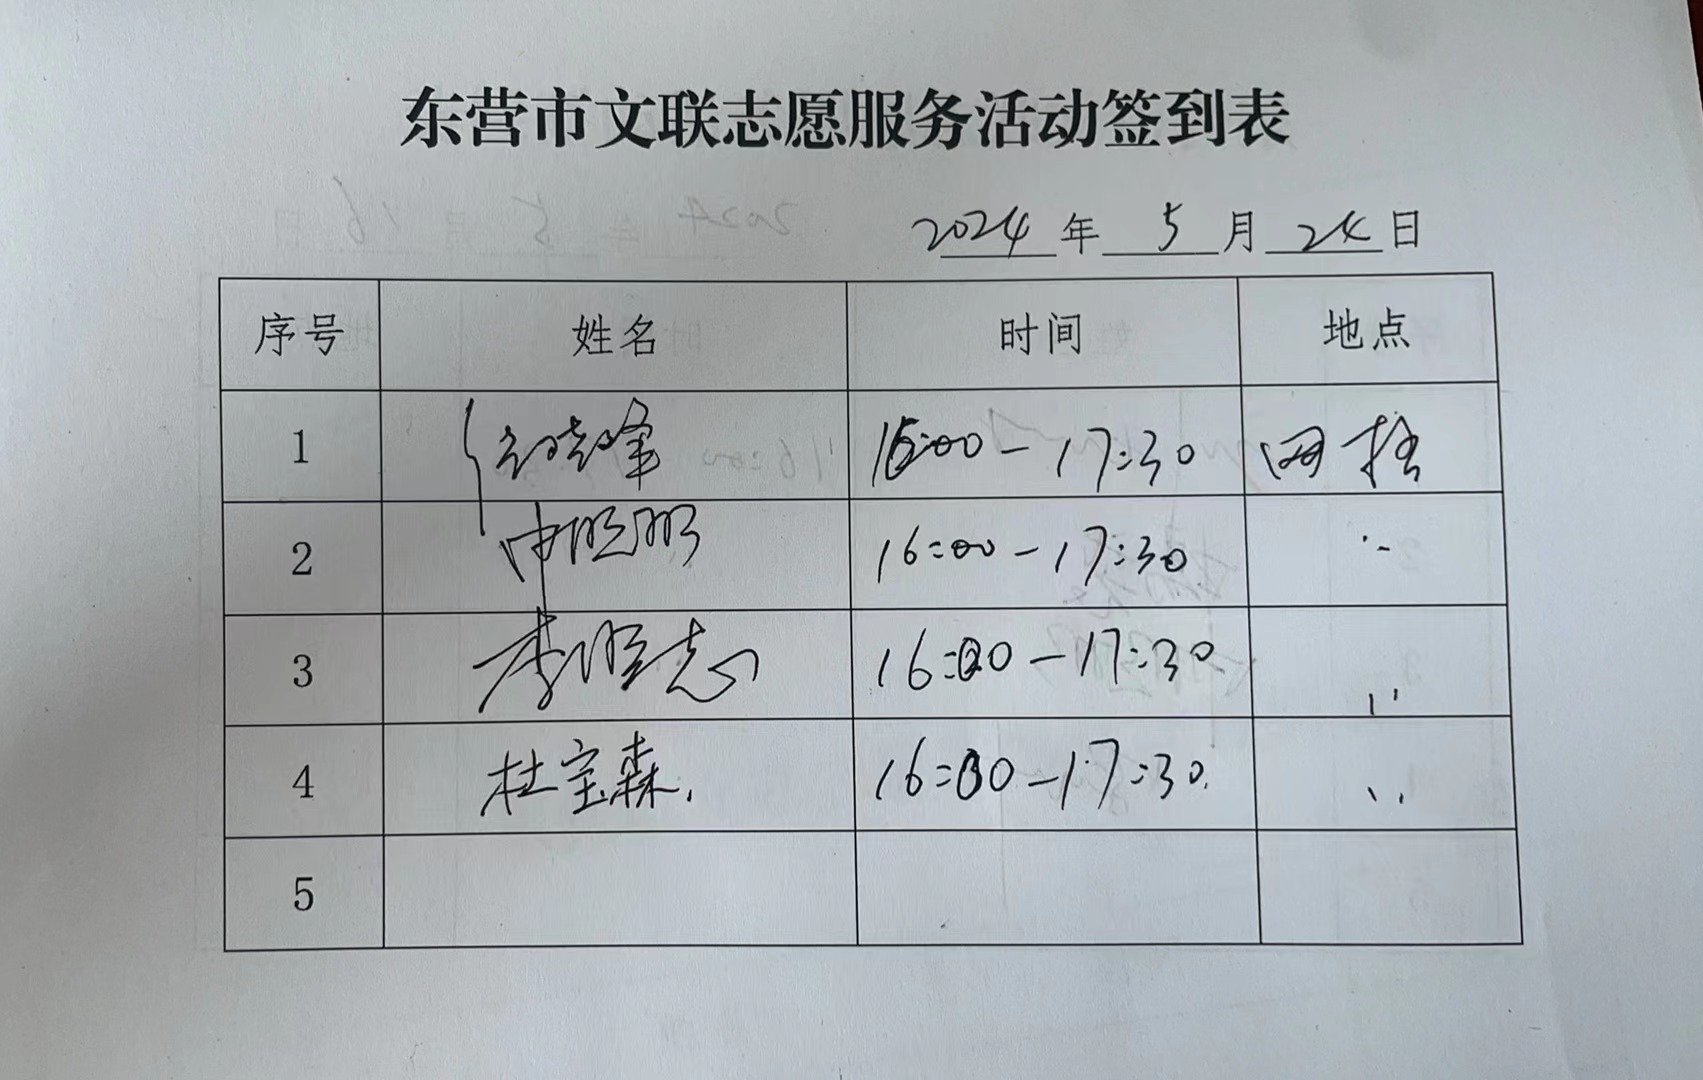 东营市文联志愿服务活动签到表
2024 年 5 月 24 日
序号 姓名 时间 地点
1 16:00-17:30 网格
2 16:00-17:30
3 李胜志 16:00-17:30
4 杜宝森 16:00-17:30
5